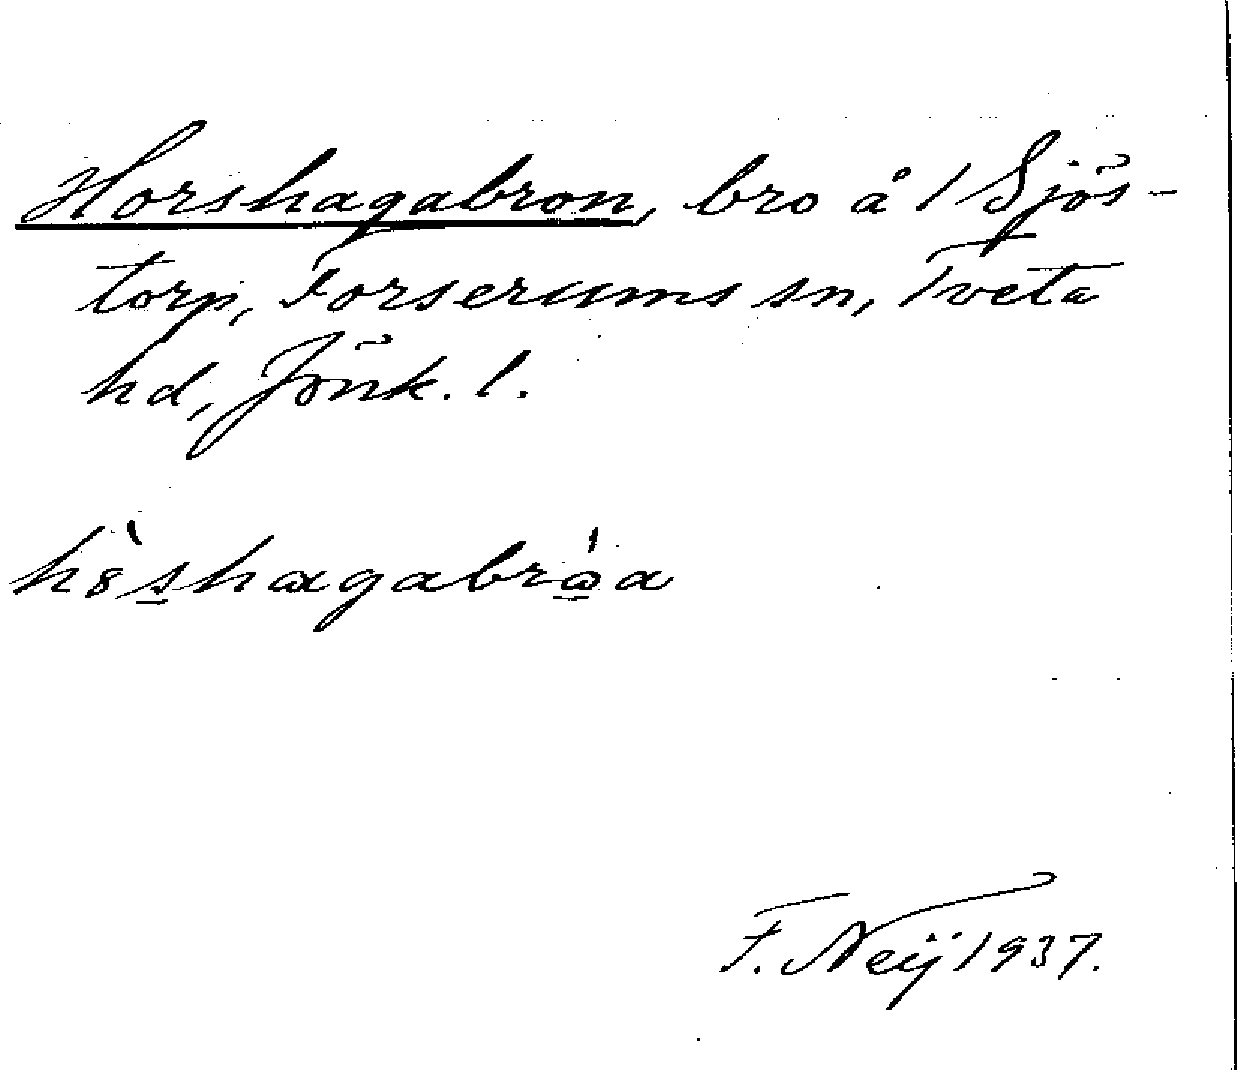 Horshagabron, bro å 1 Sjös-
torp, Forserums sn, Tveta
hd, Jönk. l.
F. Neij 1937.